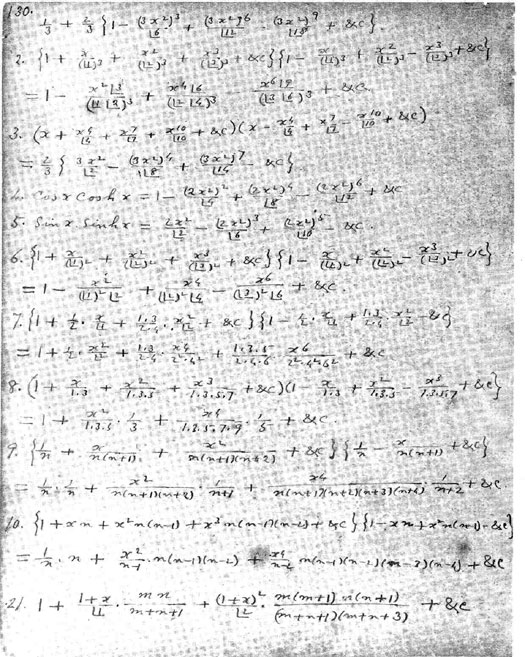 130.
1/3 + 2/3 {1 - (3x²)³/⌊6 + (3x²)⁶/⌊12 - (3x²)⁹/⌊18 + &c}.
2. {1 + x/(⌊1)³ + x²/(⌊2)³ + x³/(⌊3)³ + &c}{1 - x/(⌊1)³ + x²/(⌊2)³ - x³/(⌊3)³ + &c}
= 1 - x²⌊3/(⌊1⌊2)³ + x⁴⌊6/(⌊2⌊4)³ - x⁶⌊9/(⌊3⌊6)³ + &c.
3. (x + x⁴/⌊4 + x⁷/⌊7 + x¹⁰/⌊10 + &c)(x - x⁴/⌊4 + x⁷/⌊7 - x¹⁰/⌊10 + &c)
= 2/3 {3x²/⌊2 - (3x²)⁴/⌊8 + (3x²)⁷/⌊14 - &c}
4. Cos x Cosh x = 1 - (2x²)²/⌊4 + (2x²)⁴/⌊8 - (2x²)⁶/⌊12 + &c
5. Sin x Sinh x = 2x²/⌊2 - (2x²)³/⌊6 + (2x²)⁵/⌊10 - &c.
6. {1 + x/(⌊1)² + x²/(⌊2)² + x³/(⌊3)² + &c}{1 - x/(⌊1)² + x²/(⌊2)² - x³/(⌊3)² + &c}
= 1 - x²/(⌊1)²⌊2 + x⁴/(⌊2)²⌊4 - x⁶/(⌊3)²⌊6 + &c.
7. {1 + 1/2 · x/⌊1 + 1.3/2.4 · x²/⌊2 + &c}{1 - 1/2 · x/⌊1 + 1.3/2.4 · x²/⌊2 - &c}
= 1 + 1/2 · x²/2² + 1.3/2.4 · x⁴/2²·4² + 1.3.5/2.4.6 · x⁶/2²·4²·6² + &c
8. (1 + x/1.3 + x²/1.3.5 + x³/1.3.5.7 + &c)(1 - x/1.3 + x²/1.3.5 - x³/1.3.5.7 + &c}
= 1 + x²/1.3.5 · 1/3 + x⁴/1.3.5.7.9 · 1/5 + &c.
9. {1/n + x/n(n+1) + x²/n(n+1)(n+2) + &c}{1/n - x/n(n+1) + &c}
= 1/n · 1/n + x²/n(n+1)(n+2) · 1/n+1 + x⁴/n(n+1)(n+2)(n+3)(n+4) · 1/n+2 + &c.
10. {1 + xn + x²n(n-1) + x³n(n-1)(n-2) + &c}{1 - xn + x²n(n-1) - &c}
= 1/n · n + x²/n-1 · n(n-1)(n-2) + x⁴/n-2 n(n-1)(n-2)(n-3)(n-4) + &c
21. 1 + 1+x/⌊1 · mn/m+n+1 + (1+x)²/⌊2 · m(m+1) n(n+1)/(m+n+1)(m+n+3) + &c